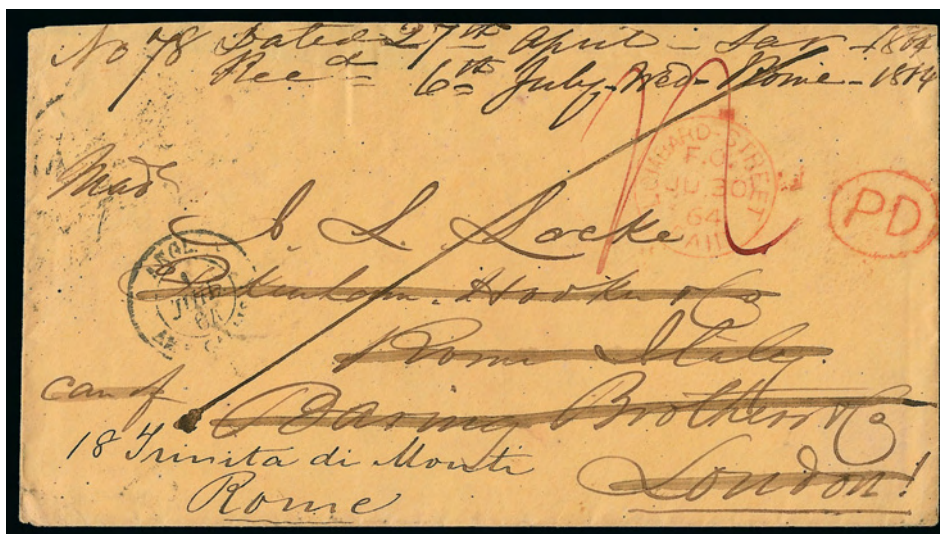 No 78 Dated 27th April - Jav - 1864
Recd 6th July - Wed - Rome - 1864
LOMBARD-STREET
F.O.
JU 30
64
PAID
PD
Mad
S. L. Locke
ANGL.
1
JUIL
64
Pakenham. Hooker & Co
Rome Italy.
care of
Baring Brothers & Co
London!
18 Trinita di Monti
Rome